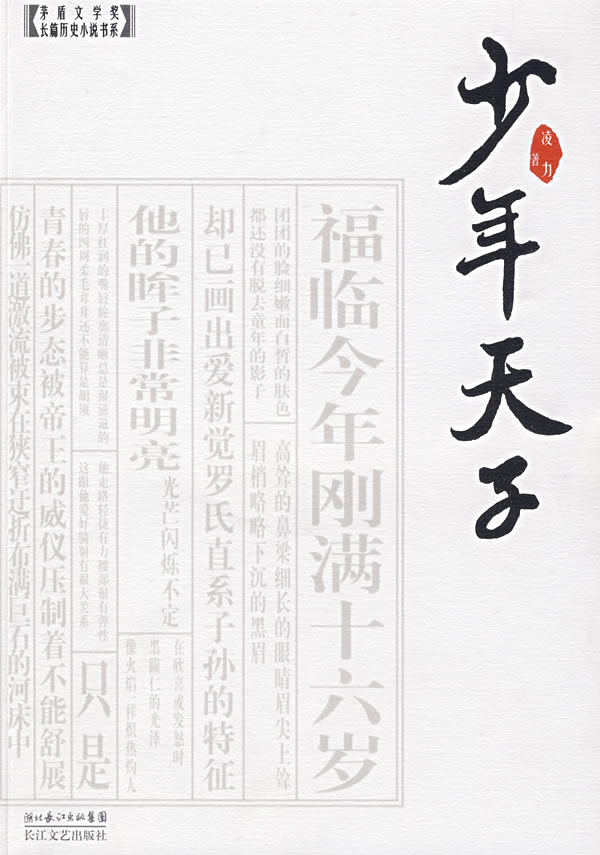 茅盾文学奖
长篇历史小说书系
少年天子
凌力
著
福临今年刚满十六岁
团团的脸细嫩而白皙的肤色
都还没有脱去童年的影子
高耸的鼻梁细长的眼睛眉尖上耸
眉梢略略下沉的黑眉
却已画出爱新觉罗氏直系子孙的特征
他的眸子非常明亮
光芒闪烁不定
在欣喜或发怒时
墨瞳仁的光泽
像火焰一样炽热灼人
丰厚红润的嘴唇轮廓清晰总是湿滋滋的
唇的四周柔毛茸茸还不能算是胡须
他走路轻捷有力腰部很有弹性
这跟他爱好骑射有很大关系
只是
青春的步态被帝王的威仪压制着不能舒展
仿佛一道激流被束在狭窄迂折布满巨石的河床中
湖北长江出版集团
长江文艺出版社